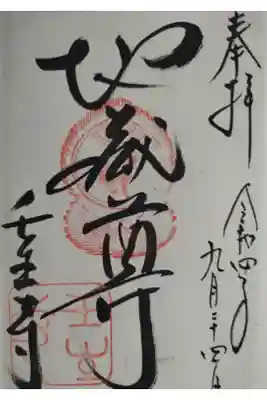 奉拝
令和四年
九月二十四日
地蔵尊
壬生寺